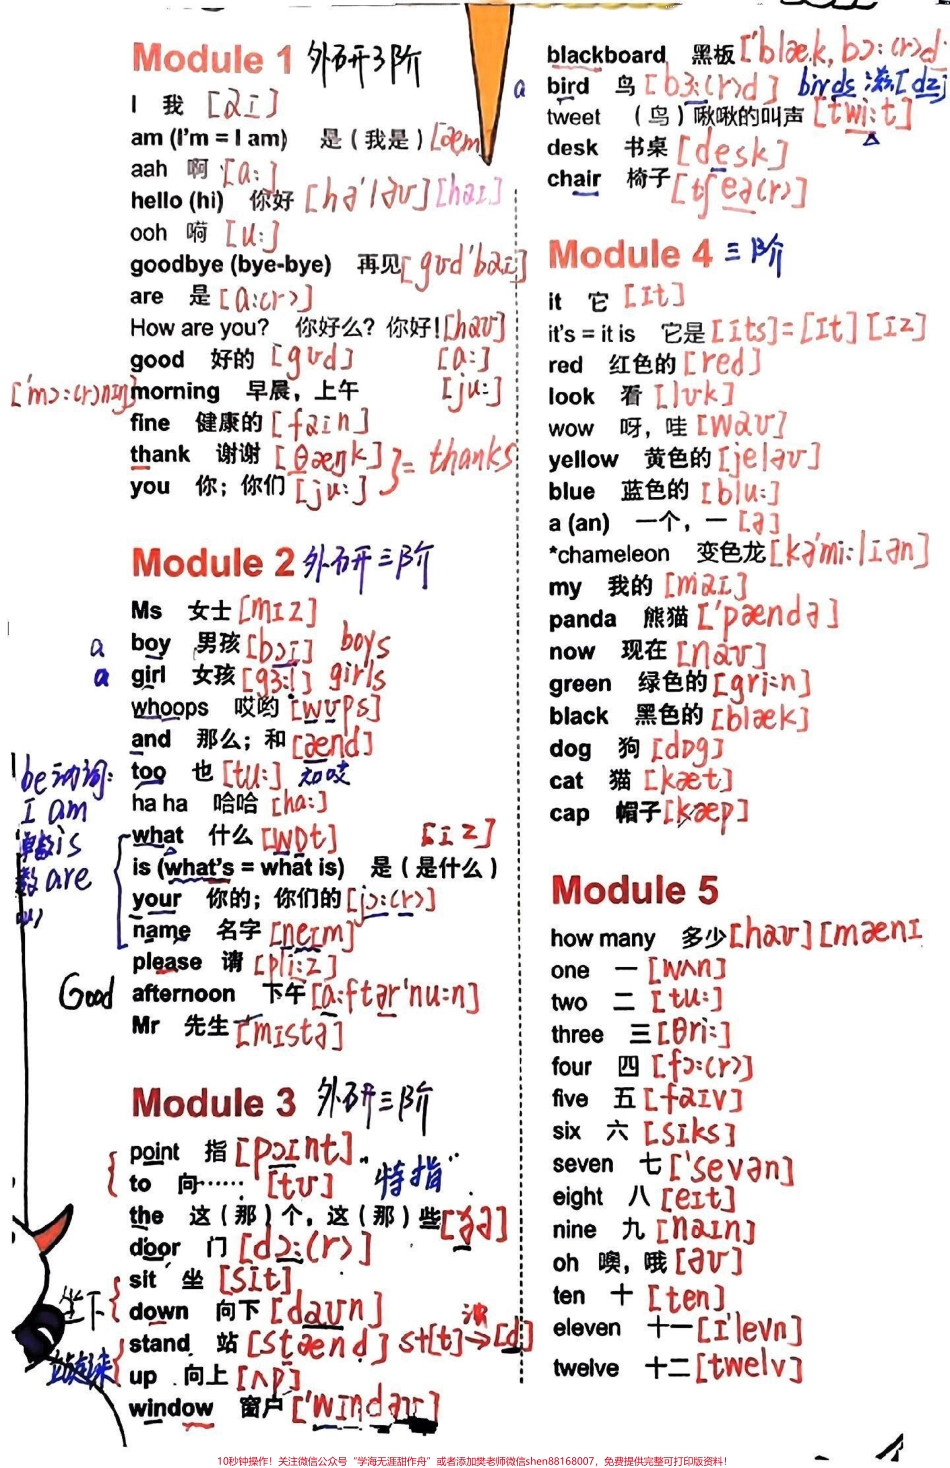 Module 1 外研3阶
I 我 [aɪ]
am (I'm = I am) 是（我是）[æm
aah 啊 [ɑ:]
hello (hi) 你好 [hə'ləʊ] [haɪ]
ooh 嗬 [u:]
goodbye (bye-bye) 再见 [gʊd'baɪ]
are 是 [ɑ:(r)]
How are you? 你好么？你好！[haʊ]
good 好的 [gʊd] [ɑ:]
['mɔ:(r)nɪŋ] morning 早晨，上午 [ju:]
fine 健康的 [faɪn]
thank 谢谢 [θæŋk] } = thanks
you 你；你们 [ju:]
Module 2 外研三阶
Ms 女士 [mɪz]
a boy 男孩 [bɔɪ] boys
a girl 女孩 [gɜ:l] girls
whoops 哎哟 [wʊps]
and 那么；和 [ænd]
too 也 [tu:]
ha ha 哈哈 [hɑ:]
be动词:
I am
单数is
数are
what 什么 [wɒt] [ɪz]
is (what's = what is) 是（是什么）
your 你的；你们的 [jɔ:(r)]
name 名字 [neɪm]
please 请 [pli:z]
Good afternoon 下午 [ɑ:ftər'nu:n]
Mr 先生 [mɪstə]
Module 3 外研三阶
point 指 [pɔɪnt]
to 向…… [tʊ] "特指"
the 这（那）个，这（那）些 [ðə]
door 门 [dɔ:(r)]
sit 坐 [sɪt]
坐下 down 向下 [daʊn]
stand 站 [stænd] st[t]→[d]
站起来 up 向上 [ʌp]
window 窗户 ['wɪndəʊ]
blackboard 黑板 ['blæk,bɔ:(r)d
a bird 鸟 [bɜ:(r)d] birds [dz]
tweet （鸟）啾啾的叫声 [twi:t]
desk 书桌 [desk]
chair 椅子 [tʃeə(r)]
Module 4 三阶
it 它 [ɪt]
it's = it is 它是 [ɪts]=[ɪt] [ɪz]
red 红色的 [red]
look 看 [lʊk]
wow 呀，哇 [waʊ]
yellow 黄色的 [jeləʊ]
blue 蓝色的 [blu:]
a (an) 一个，一 [ə]
*chameleon 变色龙 [kə'mi:lɪən]
my 我的 [maɪ]
panda 熊猫 ['pændə]
now 现在 [naʊ]
green 绿色的 [gri:n]
black 黑色的 [blæk]
dog 狗 [dɒg]
cat 猫 [kæt]
cap 帽子 [kæp]
Module 5
how many 多少 [haʊ] [mænɪ
one 一 [wʌn]
two 二 [tu:]
three 三 [θri:]
four 四 [fɔ:(r)]
five 五 [faɪv]
six 六 [sɪks]
seven 七 ['sevən]
eight 八 [eɪt]
nine 九 [naɪn]
oh 噢，哦 [əʊ]
ten 十 [ten]
eleven 十一 [ɪ'levn]
twelve 十二 [twelv]
10秒钟操作！关注微信公众号“学海无涯甜作舟”或者添加樊老师微信shen88168007，免费提供完整可打印版资料！